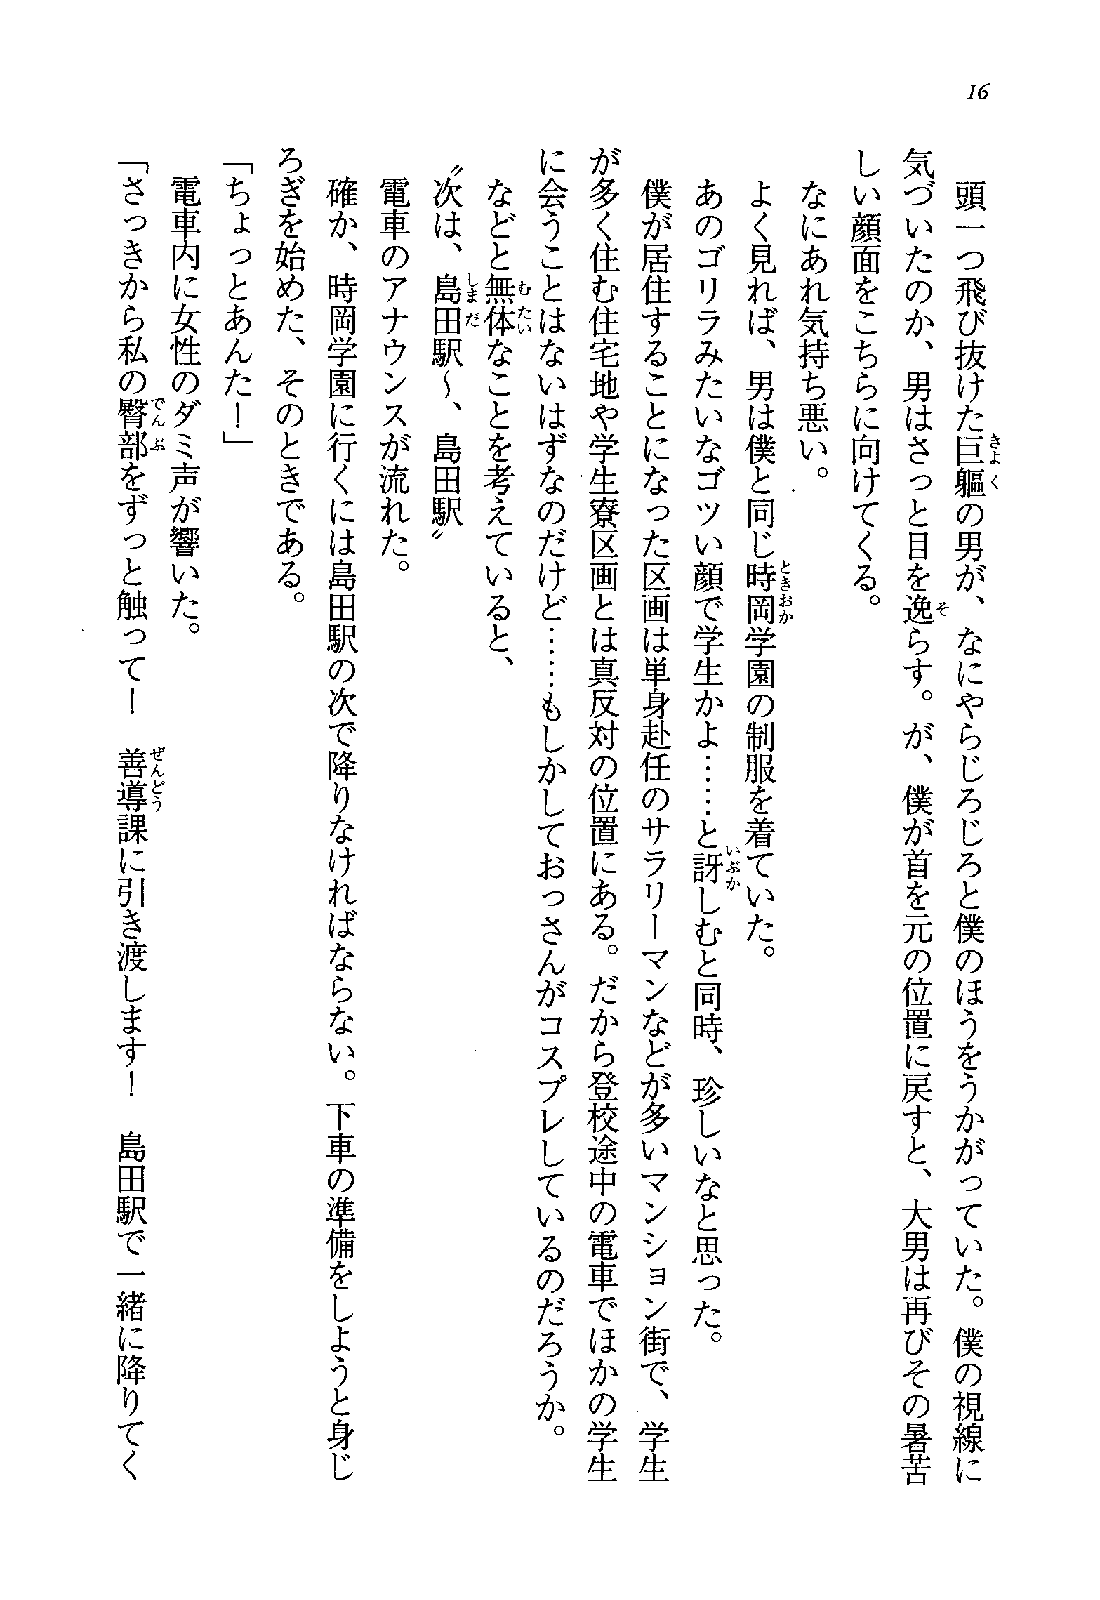 16
頭一つ飛び抜けた巨軀の男が、なにやらじろじろと僕のほうをうかがっていた。僕の視線に
気づいたのか、男はさっと目を逸らす。が、僕が首を元の位置に戻すと、大男は再びその暑苦
しい顔面をこちらに向けてくる。
なにあれ気持ち悪い。
よく見れば、男は僕と同じ時岡学園の制服を着ていた。
あのゴリラみたいなゴツい顔で学生かよ……と訝しむと同時、珍しいなと思った。
僕が居住することになった区画は単身赴任のサラリーマンなどが多いマンション街で、学生
が多く住む住宅地や学生寮区画とは真反対の位置にある。だから登校途中の電車でほかの学生
に会うことはないはずなのだけど……もしかしておっさんがコスプレしているのだろうか。
などと無体なことを考えていると、
〝次は、島田駅〜、島田駅〟
電車のアナウンスが流れた。
確か、時岡学園に行くには島田駅の次で降りなければならない。下車の準備をしようと身じ
ろぎを始めた、そのときである。
「ちょっとあんたー」
電車内に女性のダミ声が響いた。
「さっきから私の臀部をずっと触ってー　善導課に引き渡します！　島田駅で一緒に降りてく